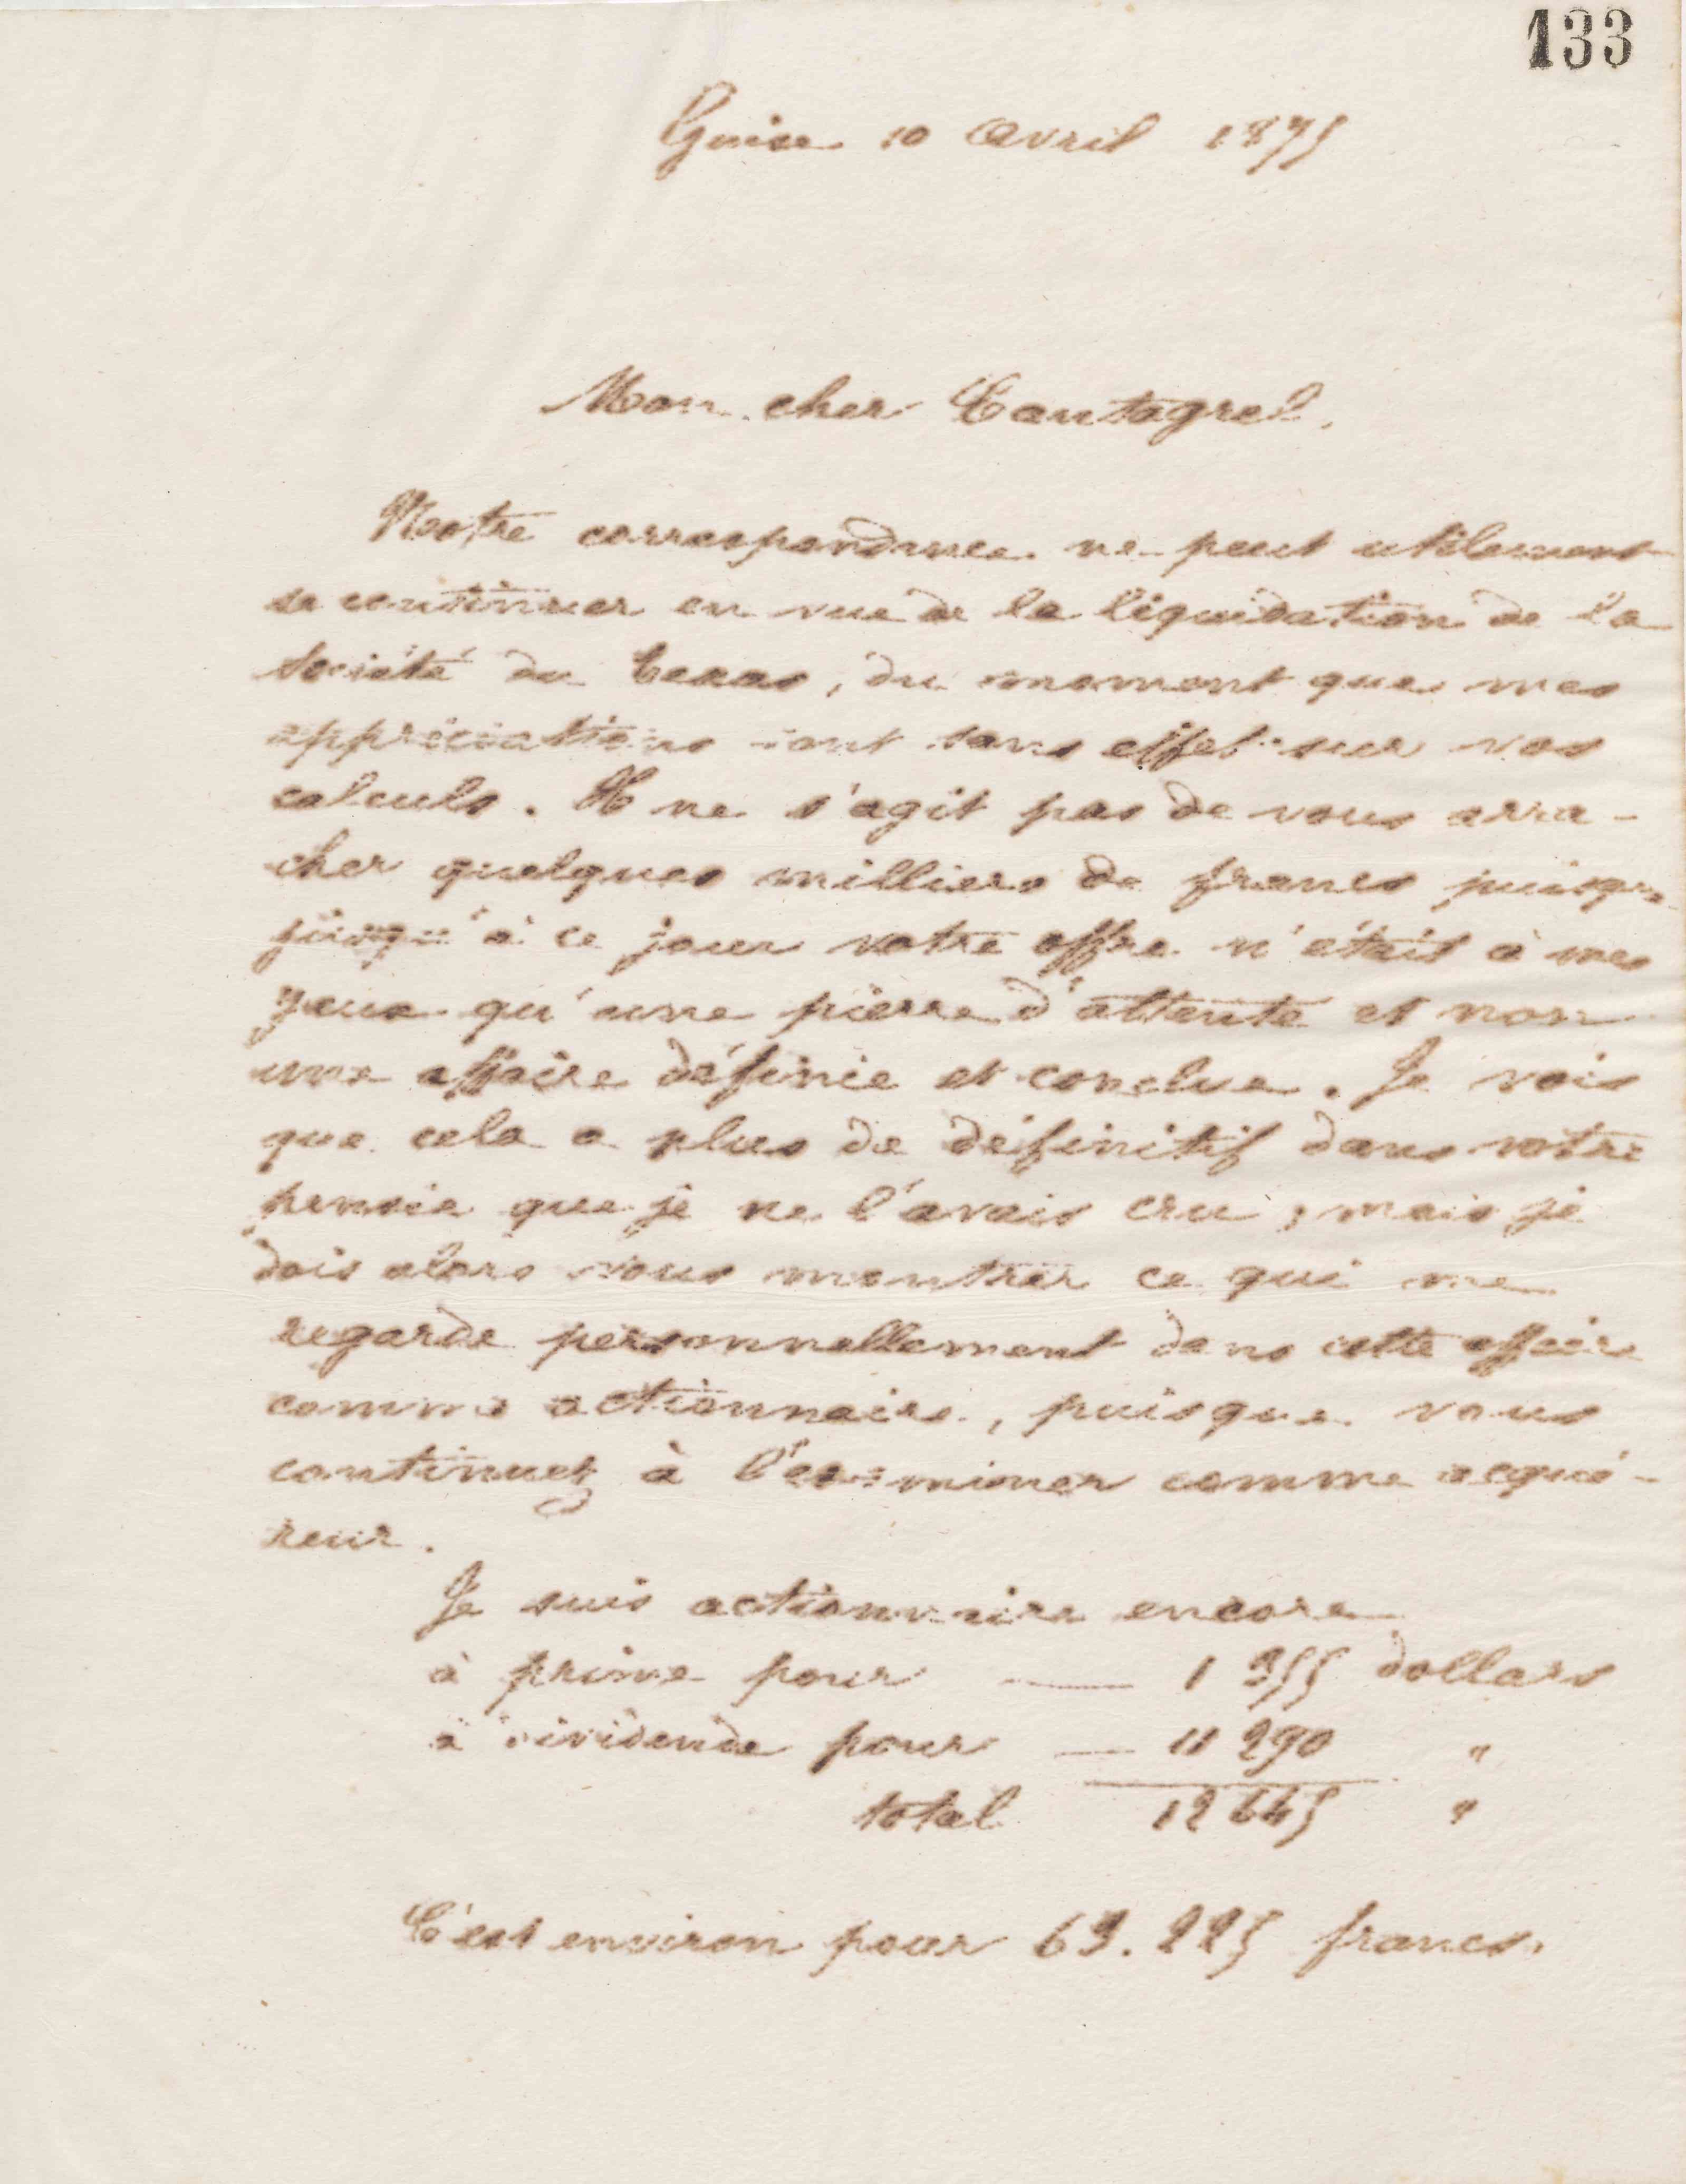 133
Guise 10 Avril 1875
Mon cher Cantagrel,
Notre correspondance ne peut utilement
se continuer en vue de la liquidation de la
société du Texas, du moment que mes
appréciations sont sans effet sur vos
calculs. Il ne s'agit pas de vous arra-
cher quelques milliers de francs puisque
jusqu'à ce jour votre offre n'était à mes
yeux qu'une pierre d'attente et non
une affaire définie et conclue. Je vois
que cela a plus de définitif dans votre
pensée que je ne l'avais cru, mais je
dois alors vous montrer ce qui me
regarde personnellement dans cette affaire
comme actionnaire, puisque vous
continuez à l'examiner comme acqué-
reur.
Je suis actionnaire encore
à prime pour — 1 355 dollars
à dividende pour — 11 290 "
total 12 645 "
C'est environ pour 63.225 francs.